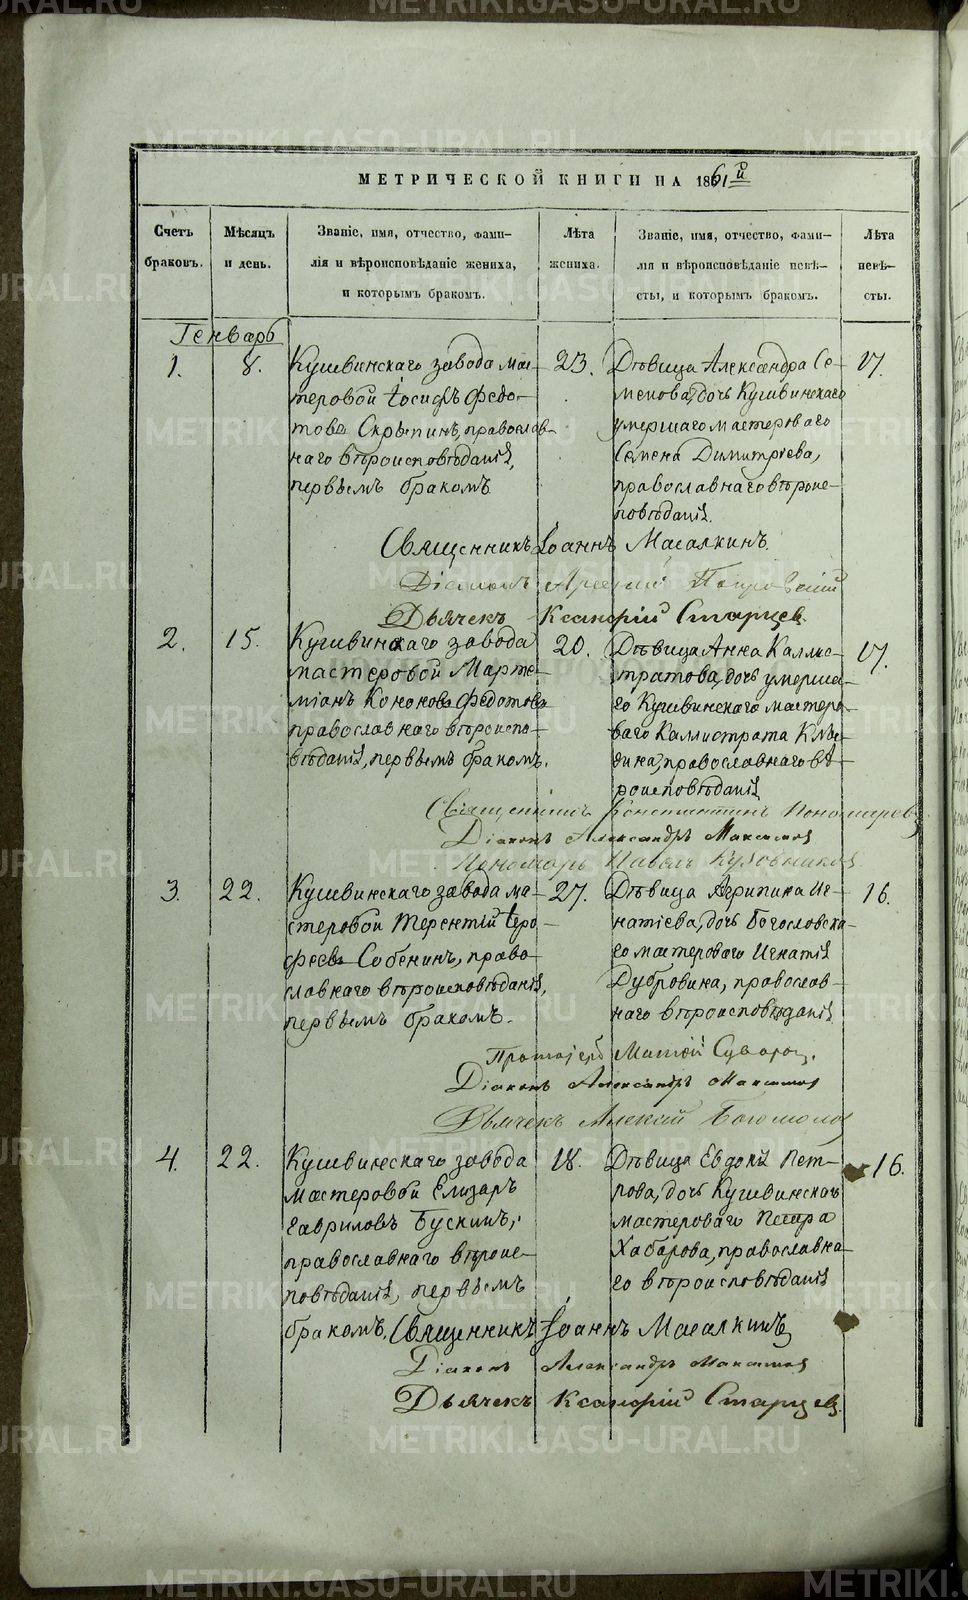 METRIKI.GASO-URAL.RU
МЕТРИЧЕСКОЙ КНИГИ НА 1861й
Счетъ браковъ.
Мѣсяцъ и день.
Званіе, имя, отчество, фами-
лія и вѣроисповѣданіе жениха,
и которымъ бракомъ.
Лѣта жениха.
Званіе, имя, отчество, фами-
лія и вѣроисповѣданіе невѣ-
сты, и которымъ бракомъ.
Лѣта невѣ-
сты.
Генварь
1.
8.
Кушвинскаго завода мас-
теровой Іосифъ Федо-
товъ Скрыпинъ, православ-
наго вѣроисповѣданія,
первымъ бракомъ
23.
Дѣвица Александра Се-
менова, дочь Кушвинскаго
умершаго мастероваго
Семена Димитріева,
православнаго вѣроис-
повѣданія.
17.
Священникъ Іоаннъ Масалкинъ.
Діаконъ Арсеній Покровскій
Дьячекъ Ксанфій Старцев
2.
15.
Кушвинскаго завода
мастеровой Марте-
міанъ Кононовъ Федотовъ
православнаго вѣроиспо-
вѣданія, первымъ бракомъ.
20.
Дѣвица Анна Каллис-
тратова, дочь умерша-
го Кушвинскаго мастеро-
ваго Каллистрата Клю-
кина, православнаго вѣ-
роисповѣданія
17.
Священникъ Константинъ Пономарев
Діаконъ Александръ Максимов
Пономарь Павелъ Кузовников
3.
22.
Кушвинскаго завода ма-
стеровой Терентій Іеро-
феевъ Собенинъ, право-
славнаго вѣроисповѣданія,
первымъ бракомъ.
27.
Дѣвица Агрипина Иг-
натіева, дочь Богословска-
го мастероваго Игнатія
Дубровина, православ-
наго вѣроисповѣданія
16.
Протоіерей Матфій Суворов.
Діаконъ Александръ Максимов
Дьячекъ Алексій Богомолов
4.
22.
Кушвинскаго завода
мастеровой Елизаръ
Гавриловъ Бускинъ,
православнаго вѣроис-
повѣданія, первымъ
бракомъ.
18.
Дѣвица Евдокія Пет-
рова, дочь Кушвинскаго
мастероваго Петра
Хабарова, православна-
го вѣроисповѣданія
16.
Священникъ Іоаннъ Масалкинъ
Діаконъ Александръ Максимов
Дьячекъ Ксанфій Старцев